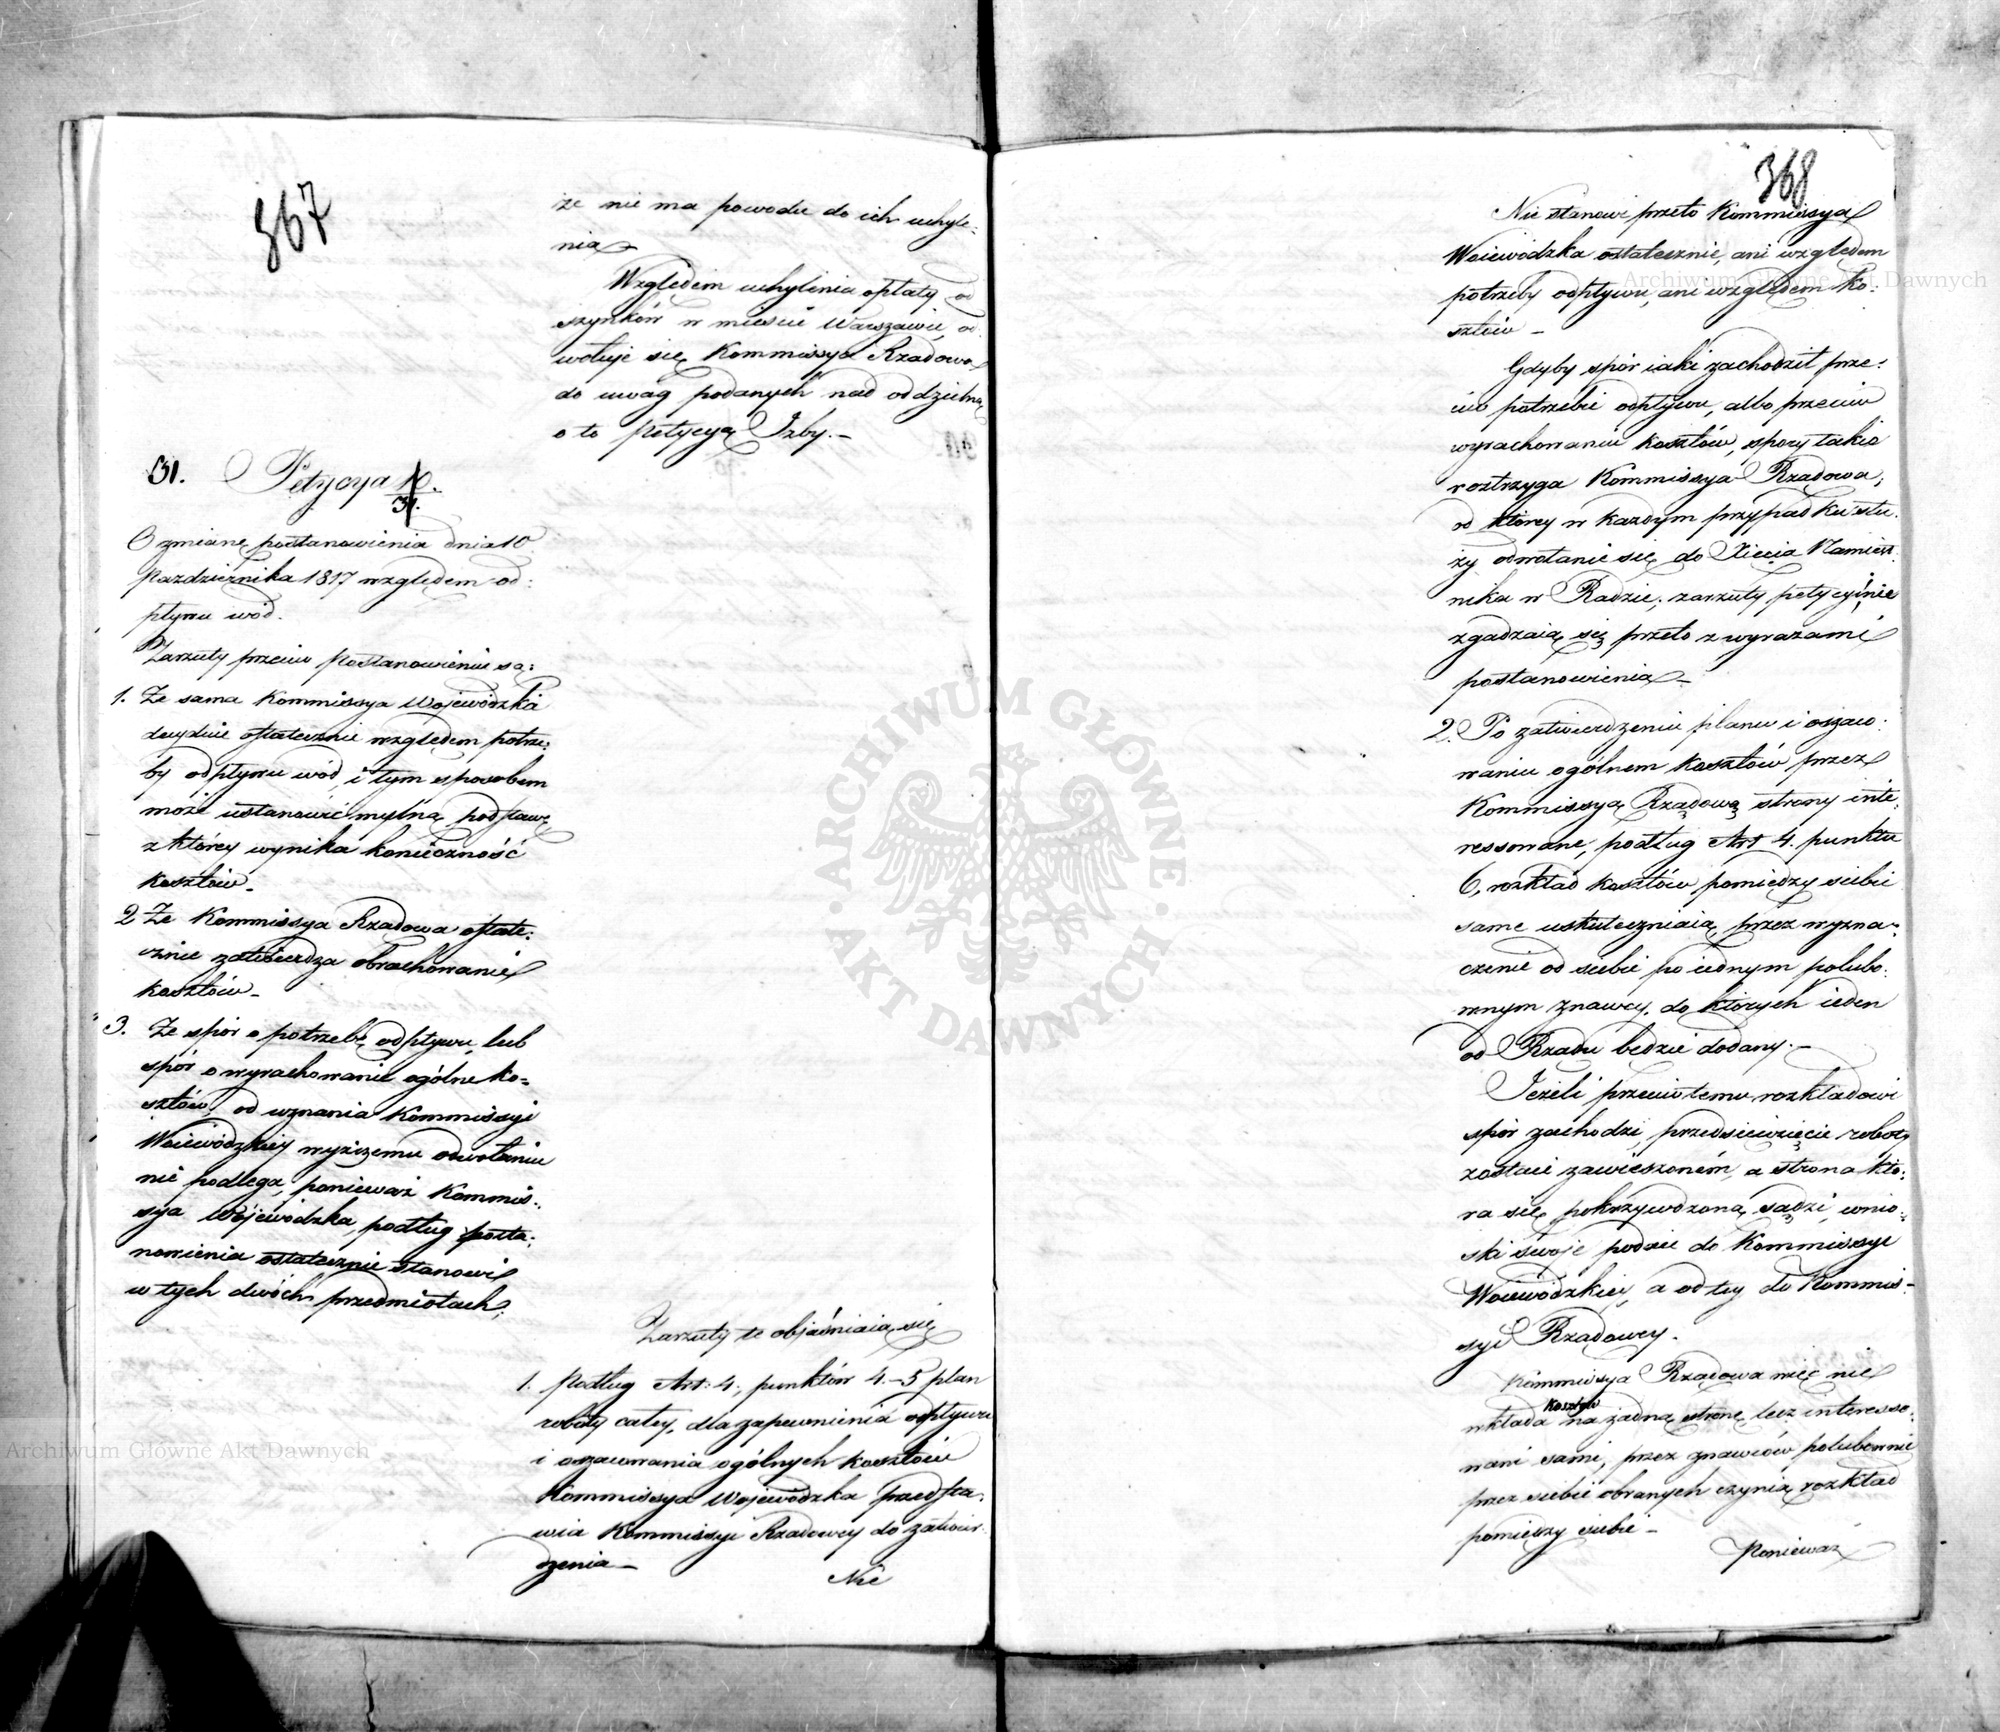 367
że nie ma powodu do ich uchyle:
nia
Względem uchylenia opłaty od
szynków w mieście Warszawie, od
wołuje się Kommissya Rządowa
do uwag podanych nad oddzielną
o to petycyą Izby.–
31. Petycya 10.
31.
O zmianę postanowienia dnia 10
Października 1817 względem od:
pływu wód.
Zarzuty przeciw postanowieniu są:
1. Że sama Kommissya Wojewódzka
decyduie ostatecznie względem potrze:
by odpływu wód, i tym sposobem
może ustanowić mylną podstawę
z którey wynika konieczność
kosztów_
2 Że Kommissya Rządowa ostate:
cznie zatwierdza obrachowanie
kosztów_
3. Że spór o potrzebę odpływu, lub
spór o wyrachowanie ogólne ko=
sztów, od uznania Kommissyi
Woiewódzkiey wyższemu odwołaniu
nie podlega, ponieważ Kommis:
sya Wojewódzka, podług posta:
nowienia ostatecznie stanowi
w tych dwóch przedmiotach;
Zarzuty te objaśniaią się
1. Podług Art: 4; punktów 4.–5 plan
roboty całey, dla zapewnienia odpływu
i oszacowania ogólnych kosztów
Kommissya Wojewódzka przedsta:
wia Kommissyi Rządowey do zatwier:
dzenia_
Nie
368
Nie stanowi przeto Kommissya
Woiewódzka ostatecznie, ani względem
potrzeby odpływu, ani względem ko:
sztów _
Gdyby spór iaki zachodził prze:
ciw potrzebie odpływu, albo przeciw
wyrachowaniu kosztów, spory takie
roztrzyga Kommissya Rządowa;
od którey w każdym przypadku słu:
ży odwołanie się do Xięcia Namiest
nika w Radzie; zarzuty petycyinie
zgadzaią się przeto z wyrazami
postanowienia_
2. Po zatwierdzeniu planu i oszaco:
waniu ogólnem kosztów przez
Kommissyą Rządową strony inte:
ressowane, podług Art 4. punktu
6, rozkład kosztów pomiędzy siebie
same uskuteczniaią, przez wyzna:
czenie od siebie po iednym polubo:
wnym znawcy, do których ieden
od Rządu będzie dodany._
Jeżeli przeciw temu rozkładowi
spór zachodzi, przedsięwzięcie roboty
zostaie zawieszoném, a strona któ:
ra się pokrzywdzoną sądzi, wnio:
ski swoje podaie do Kommissyi
Woiewódzkiey, a od tey do Kommis–
syi Rządowey.
Kommissya Rządowa więc nie
kosztów
wkłada na żadną stronę, lecz interesso:
wani sami, przez znawców polubownie
przez siebie obranych czynią rozkład
pomiędzy siebie _
Ponieważ
Archiwum Główne Akt Dawnych
Archiwum Główne Akt Dawnych
ARCHIWUM GŁÓWNE
AKT DAWNYCH